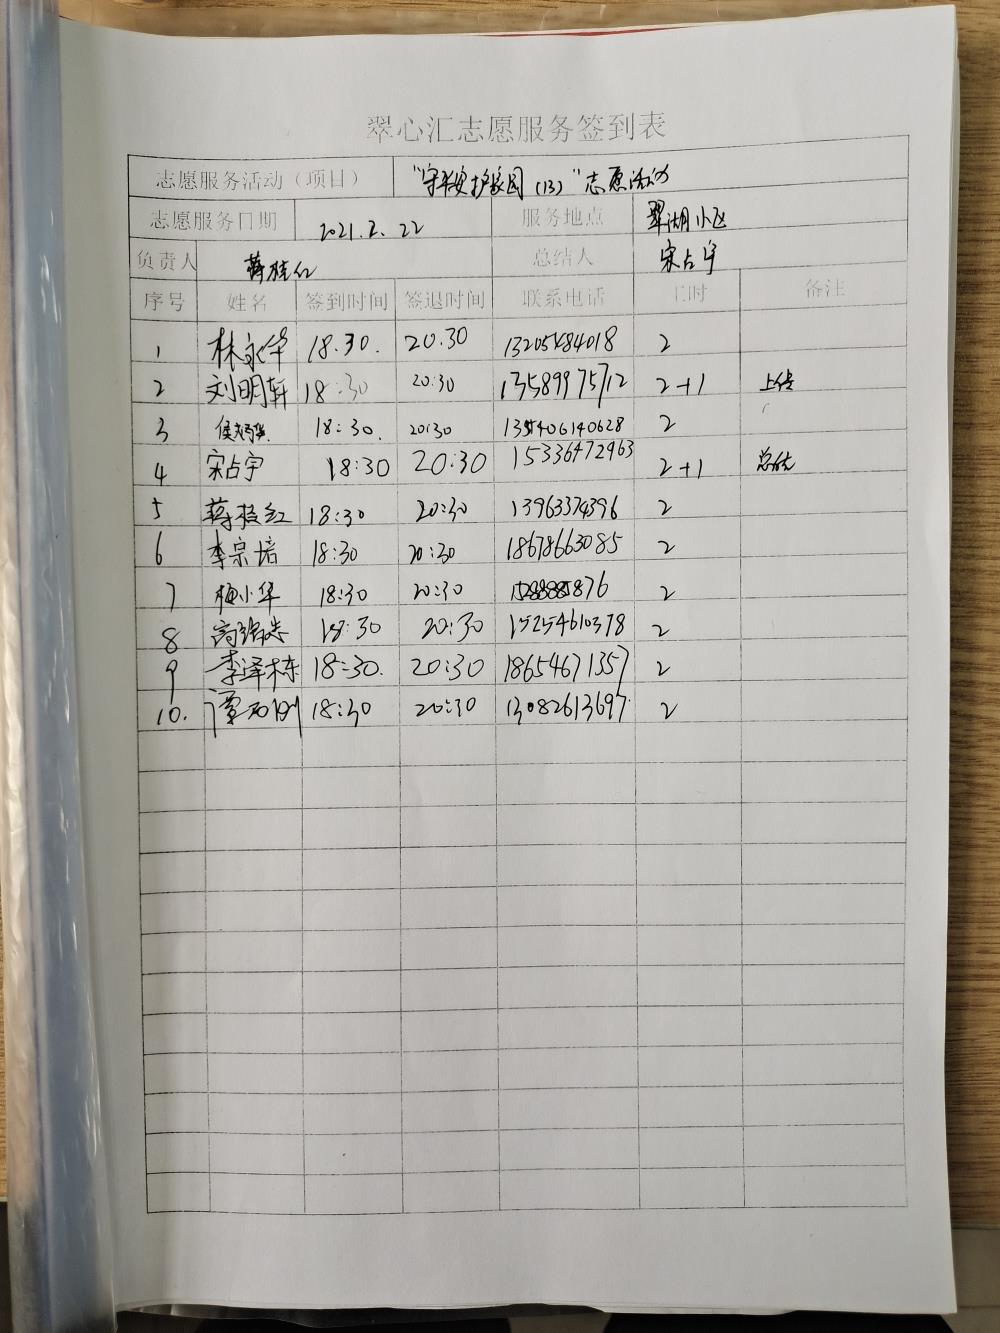 翠心汇志愿服务签到表
志愿服务活动（项目） “守平安护家园（13）”志愿活动
志愿服务日期 2021.2.22 服务地点 翠湖小区
负责人 蒋桂红 总结人 宋占宇
序号 姓名 签到时间 签退时间 联系电话 工时 备注
1 林永华 18.30. 20.30 13205484018 2
2 刘明轩 18:30 20:30 13589975712 2+1 上传
3 18:30. 20:30 2
4 宋占宇 18:30 20:30 15336472963 2+1 总结
5 蒋桂红 18:30 20:30 13963374396 2
6 李宗培 18:30 20:30 18678663085 2
7 梅小华 18:30 20:30 2
8 18:30 20:30 15254610378 2
9 李泽栋 18:30. 20:30 18654671357 2
10. 18:30 20:30 13082613697 2